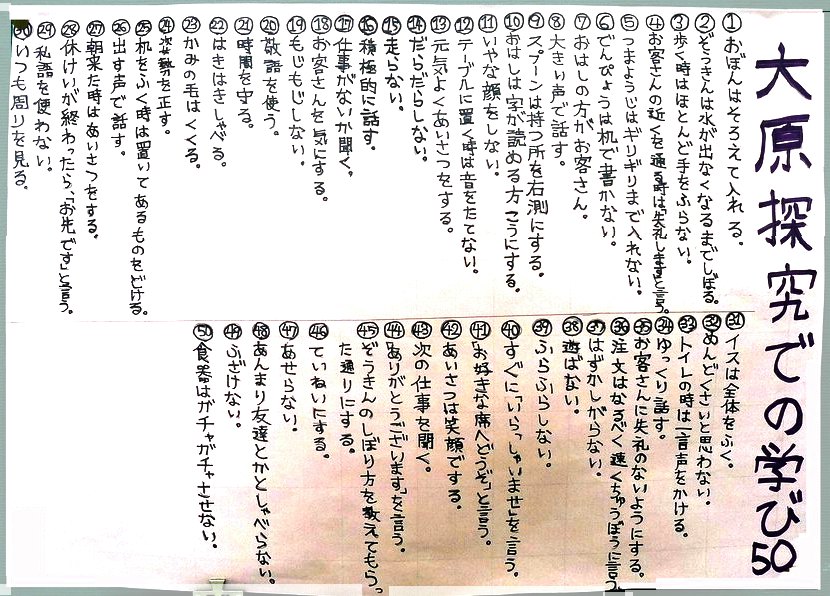 大原探究での学び50
①おぼんはそろえて入れる。
②ぞうきんは水が出なくなるまでしぼる。
③歩く時はほとんど手をふらない。
④お客さんの近くを通る時は「失礼します」と言う。
⑤つまようじはギリギリまで入れない。
⑥でんぴょうは机で書かない。
⑦おはしの方がお客さん。
⑧大きい声で話す。
⑨スプーンは持つ所を右測にする。
⑩おはしは、字が読める方こうにする。
⑪いやな顔をしない。
⑫テーブルに置く時は音をたてない。
⑬元気よくあいさつをする。
⑭だらだらしない。
⑮走らない。
⑯積極的に話す。
⑰仕事がないか聞く。
⑱お客さんを気にする。
⑲もじもじしない。
⑳敬語を使う。
㉑時間を守る。
㉒はきはきしゃべる。
㉓かみの毛はくくる。
㉔姿勢を正す。
㉕机をふく時は置いてあるものをどける。
㉖出す声で話す。
㉗朝来た時はあいさつをする。
㉘休けいが終わったら、「お先です」と言う。
㉙私語を使わない。
㉚いつも周りを見る。
㉛イスは全体をふく。
㉜めんどくさいと思わない。
㉝トイレの時は一言声をかける。
㉞ゆっくり話す。
㉟お客さんに失礼のないようにする。
㊱注文はなるべく速くちゅうぼうに言う。
㊲はずかしがらない。
㊳遊ばない。
㊴ふらふらしない。
㊵すぐに「いらっしゃいませ」を言う。
㊶「お好きな席へどうぞ」と言う。
㊷あいさつは笑顔でする。
㊸次の仕事を聞く。
㊹「ありがとうございます」を言う。
㊺ぞうきんのしぼり方を教えてもらっ
た通りにする。
㊻ていねいにする。
㊼あせらない。
㊽あんまり友達とかとしゃべらない。
㊾ふざけない。
㊿食器はガチャガチャさせない。